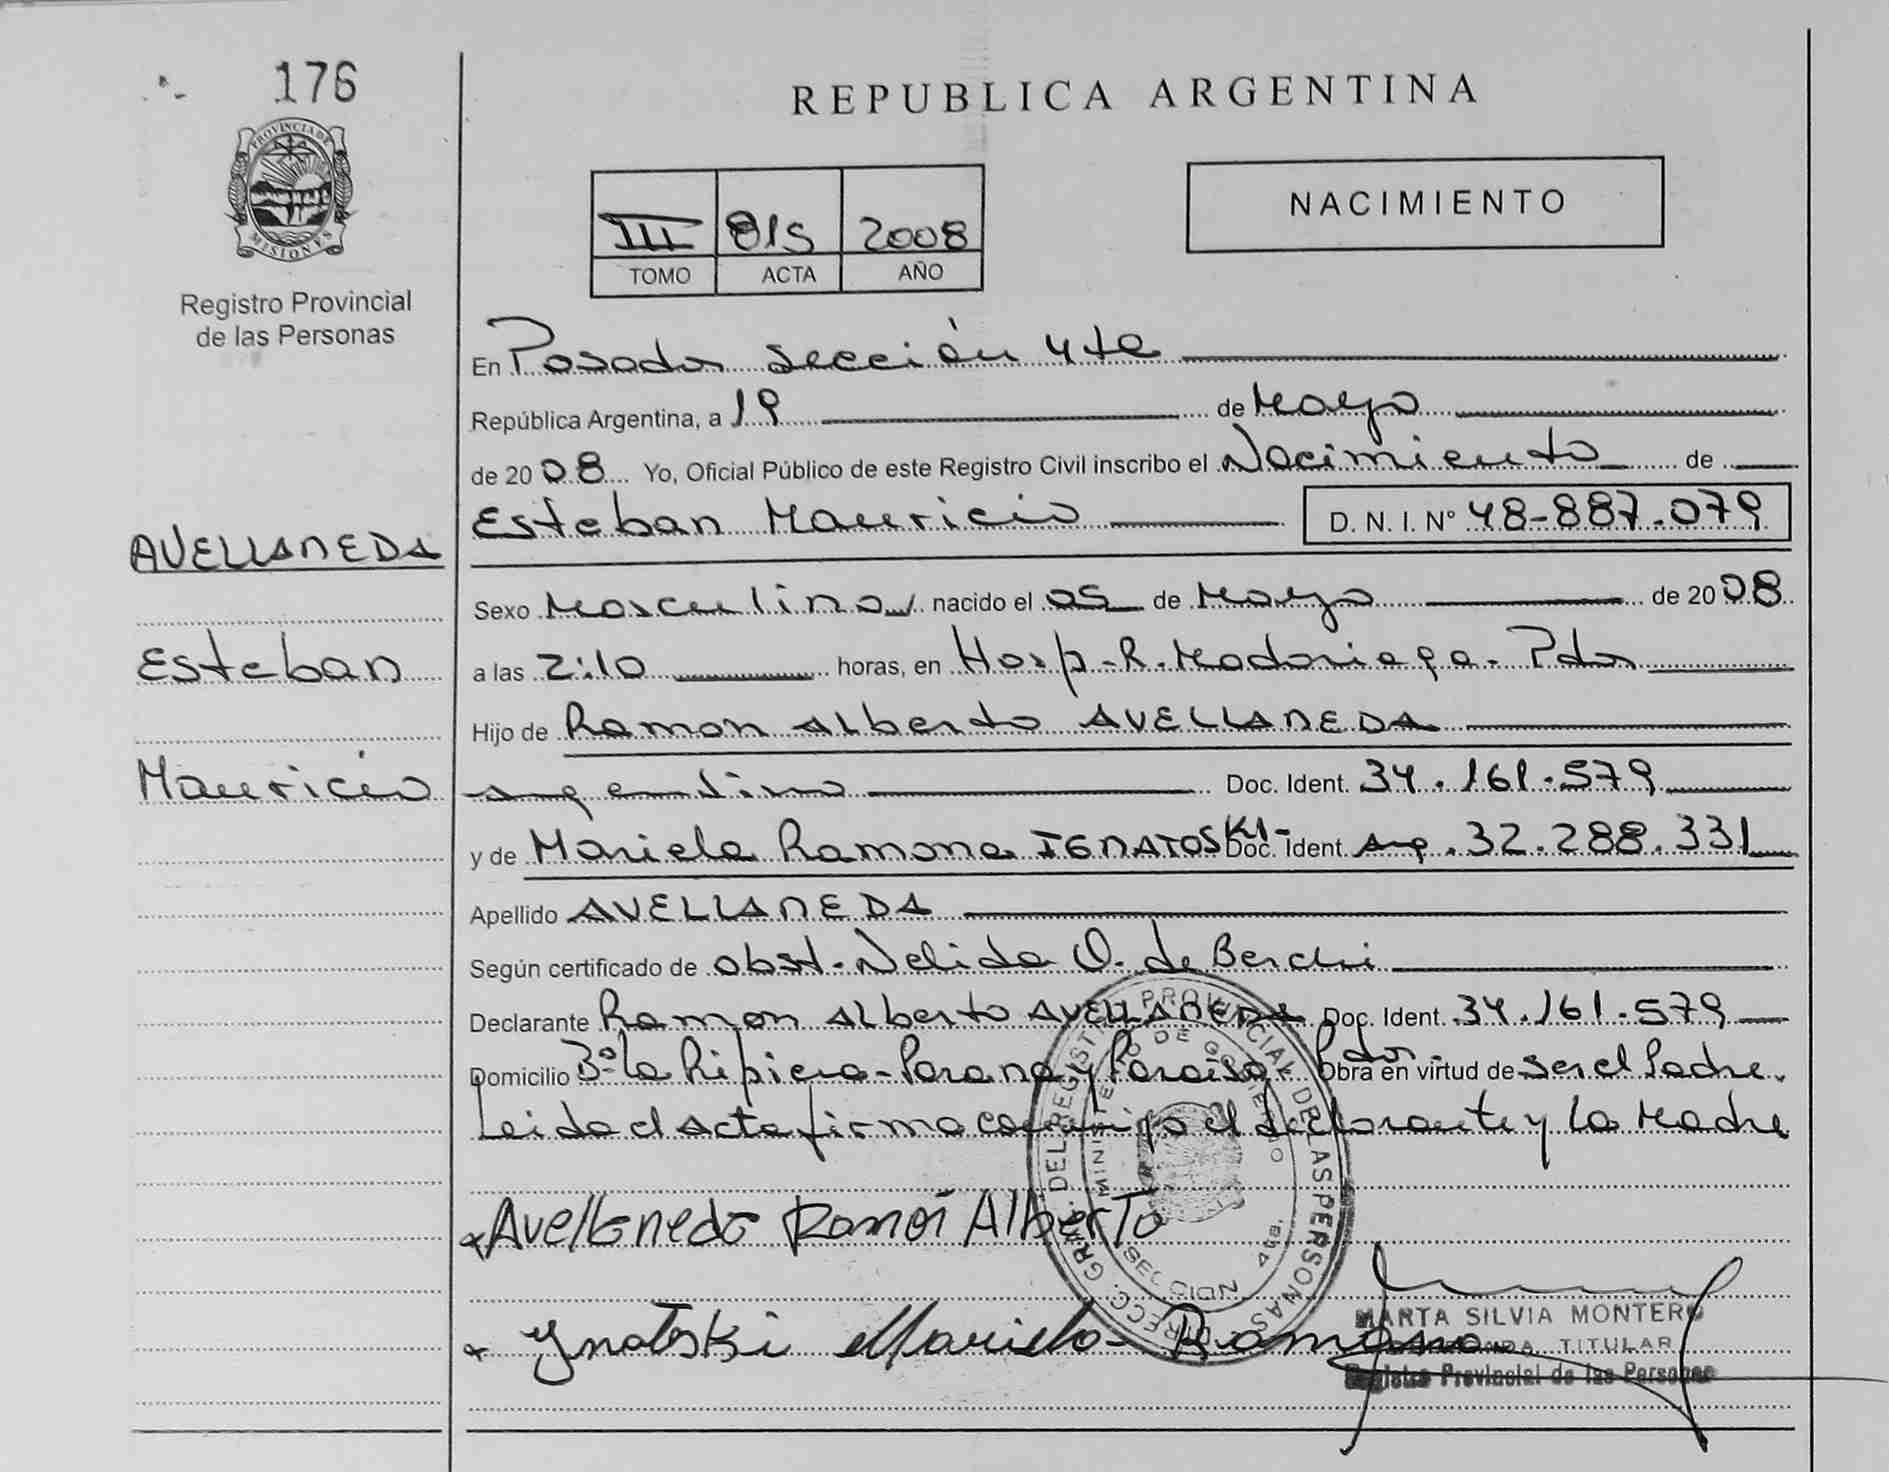 176
PROVINCIA DE
MISIONES
Registro Provincial
de las Personas
AVELLANEDA
Esteban
Mauricio
REPUBLICA ARGENTINA
III 815 2008
TOMO ACTA AÑO
NACIMIENTO
En Posadas sección 4ta
República Argentina, a 19 de Mayo
de 2008 Yo, Oficial Público de este Registro Civil inscribo el Nacimiento de
Esteban Mauricio D. N. I. N° 48-887.079
Sexo Masculino nacido el 05 de Mayo de 2008
a las 2:10 horas, en Hosp-R. Madariaga-Pdas
Hijo de Ramon Alberto AVELLANEDA
argentino Doc. Ident. 34.161.579
y de Mariela Ramona IGNATOSKI- Doc. Ident Arg. 32.288.331
Apellido AVELLANEDA
Según certificado de obst. Nelida O. de Berchi
Declarante Ramon Alberto AVELLANEDA Doc. Ident. 34.161.579
Domicilio B° La Ribiera-Parana y Paraiso- Pdas- Obra en virtud de ser el Padre.
Leida el Acta firma conmigo el declarante y la Madre
Avellaneda Ramon Alberto
Ynatoski Mariela Ramona
DIRECC. GRAL. DEL REGISTRO PROVINCIAL DE LAS PERSONAS
MINISTERIO DE GOBIERNO
SECCION 4ta.
MARTA SILVIA MONTERO
TITULAR
Registro Provincial de las Personas